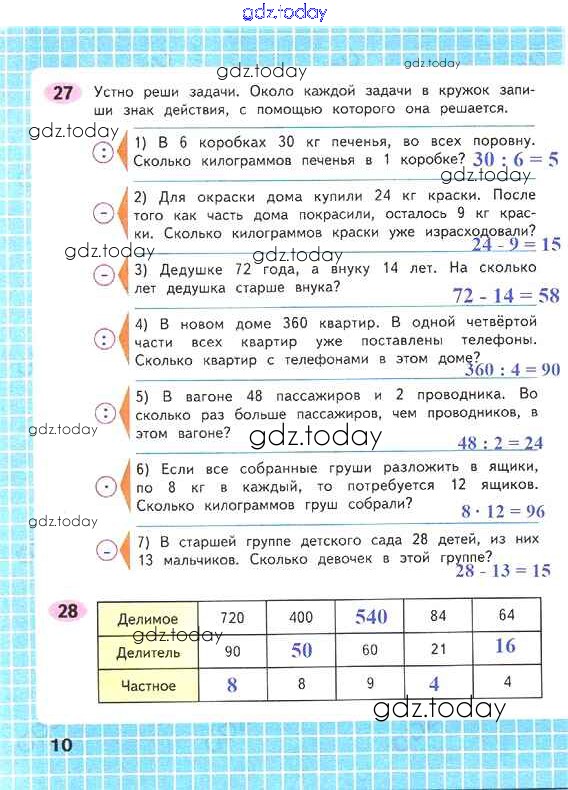 gdz.today
gdz.today
27 Устно реши задачи. Около каждой задачи в кружок запи-
ши знак действия, с помощью которого она решается.
gdz.today
: 1) В 6 коробках 30 кг печенья, во всех поровну.
Сколько килограммов печенья в 1 коробке? 30 : 6 = 5
gdz.today
- 2) Для окраски дома купили 24 кг краски. После
того как часть дома покрасили, осталось 9 кг крас-
ки. Сколько килограммов краски уже израсходовали?
24 - 9 = 15
gdz.today
- 3) Дедушке 72 года, а внуку 14 лет. На сколько
лет дедушка старше внука?
72 - 14 = 58
: 4) В новом доме 360 квартир. В одной четвёртой
части всех квартир уже поставлены телефоны.
Сколько квартир с телефонами в этом доме?
360 : 4 = 90
gdz.today
: 5) В вагоне 48 пассажиров и 2 проводника. Во
сколько раз больше пассажиров, чем проводников, в
этом вагоне?
gdz.today
gdz.today
48 : 2 = 24
· 6) Если все собранные груши разложить в ящики,
по 8 кг в каждый, то потребуется 12 ящиков.
Сколько килограммов груш собрали?
8 · 12 = 96
gdz.today
- 7) В старшей группе детского сада 28 детей, из них
13 мальчиков. Сколько девочек в этой группе?
28 - 13 = 15
28
Делимое 720 400 540 84 64
gdz.today
Делитель 90 50 60 21 16
Частное 8 8 9 4 4
gdz.today
10